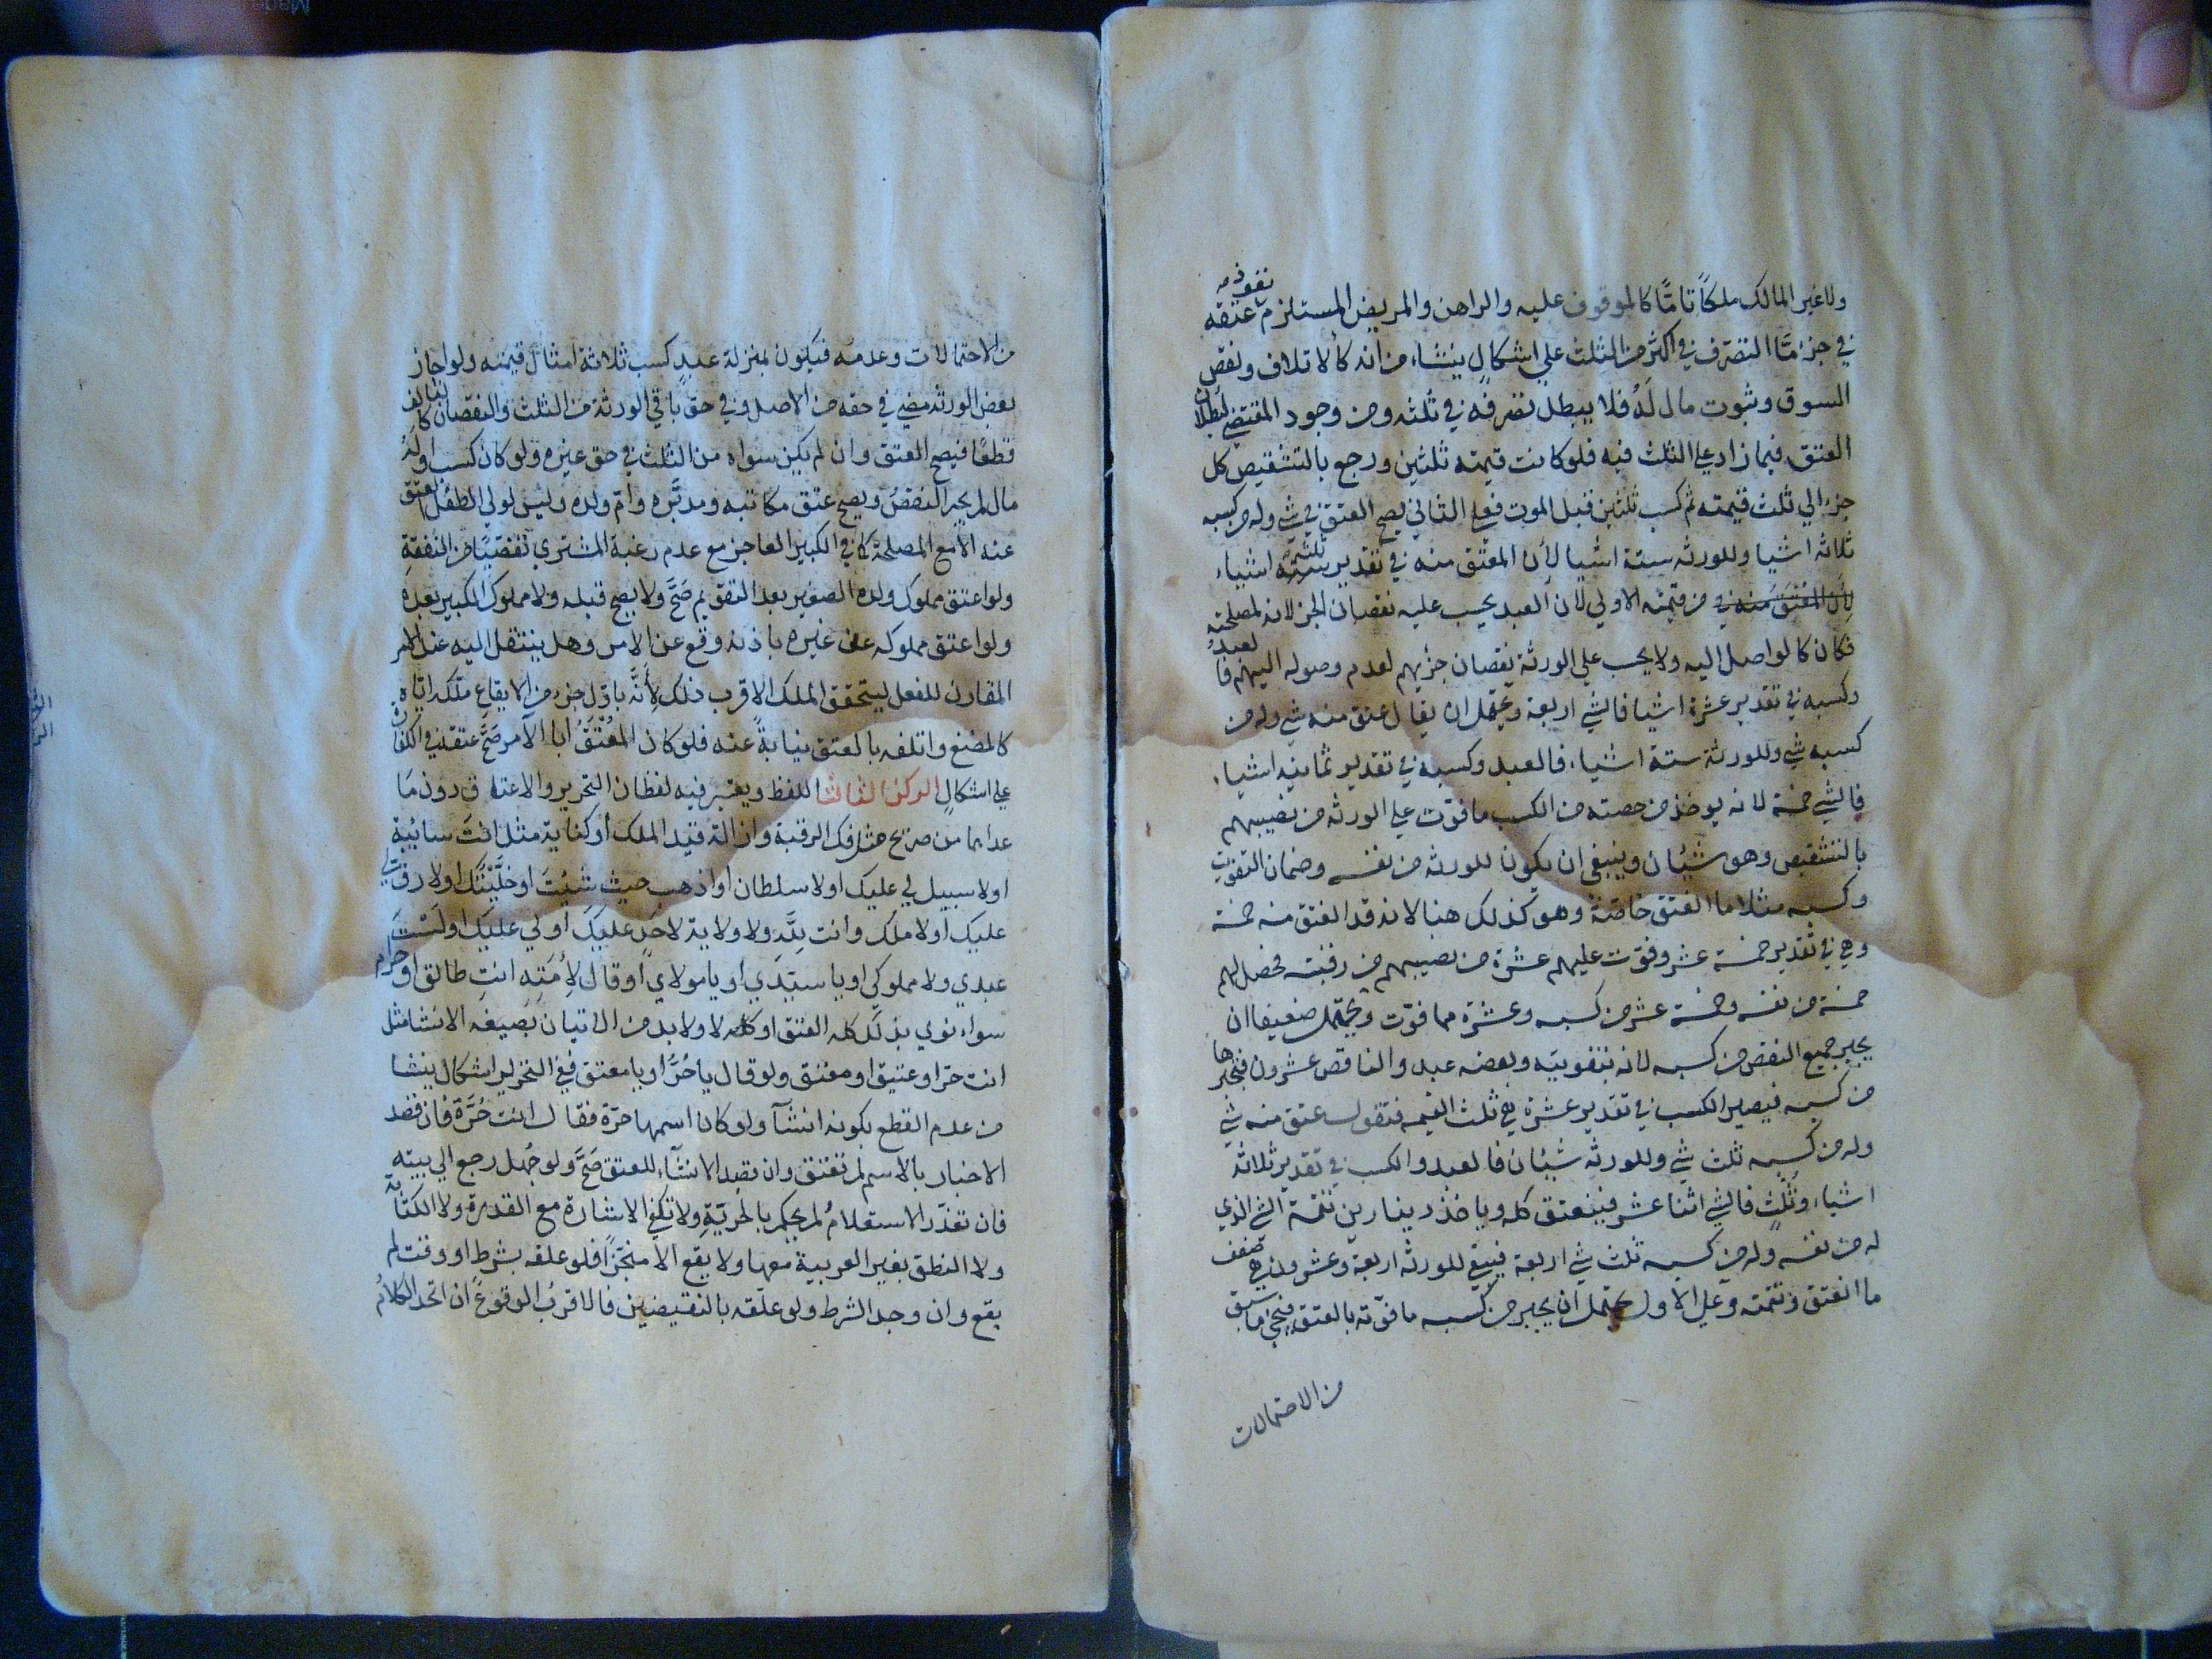 ولا غير المالك ملكًا تامًّا كالموقوف عليه والراهن والمريض المستلزم نفوذ عتقه
في جزء مّا التصرّف في اكثر من الثلث علي اشكالٍ ينشاء من انه كالاتلاف ونقص
السوق وثبوت مال لَهُ فلا يبطل تصرفه في ثلثه ومن وجود المقتضي لبطلان
العتق فيما زاد علي الثلث فيه فلو كانت قيمته ثلثين ورجع بالتشقيص كل
جزء الي ثلث قيمته ثم كسب ثلثين قبل الموت فعلي الثاني يصح العتق في شي وله من كسبه
ثلاثة اشيا وللورثه ستة اشيا لأن المعتق منه في تقدير ثلثة اشياء
من قيمته الاولي لأن العبد يحسب عليه نقصان الجزء لانه لمصلحته
فكان كالواصل اليه ولا يحسب علي الورثة نقصان جزئهم لعدم وصوله اليهم فالعبد
وكسبه في تقدير عشرة اشيا فالشي اربعة ويحتمل ان يقال عتق منه شي وله من
كسبه شي وللورثة ستة اشياء فالعبد وكسبه في تقدير ثمانيه اشياء
فالشي خمسة لانه يوخذ من حصته من الكسب ما فوّت علي الورثه من نصيبهم
بالتشقيص وهو شيئان وينبغي ان يكون للورثه من نفسه وضمان التفويت
وكسبه مثلا ما انعتق خاصّة وهو كذلك هنا لانه قد انعتق منه خمسة
وهي في تقدير خمسة عشر وفوّت عليهم عشرة من نصيبهم من رقبته فحصل لهم
خمسة من نفسه وخمسة عشر من كسبه وعشرة مما فوّت ويحتمل ضعيفا ان
يجبر جميع النقص من كسبه لانه بتفويته وبعضه عبد والناقص عشرون فيجبرها
من كسبه فيصير الكسب في تقدير عشرة هي ثلث القيمه فنقول عتق منه شي
وله من كسبه ثلث شي وللورثه شيئان فالعبد والكسب في تقدير ثلاثة
اشياء وثُلُثٍ فالشي اثنا عشر فينعتق كله وياخذ دينارين تتمة الشي الذي
له من نفسه وله من كسبه ثلث شي اربعة فيبقي للورثه اربعة وعشرون هي ضعف
ما انعتق وتتمته وعلي الاول يحتمل ان يجبر من كسبه ما فوّته بالعتق فيجئ ما سبق
من الاحتمالات
من الاحتمالات وعدمه فيكون بمنزلة عبدٍ كسب ثلاثة امثال قيمته ولو اجاز
بعض الورثه مضي في حقه من الاصل وفي حق باقي الورثة من الثلث والنقصان كالتالف
قطعًا فيصح العتق وان لم يكن سواه من الثلث في حق غيره ولو كان كسب او لَهُ
مال لم يجبر النقصُ ويصح عتق مكاتبه ومدبَّره وأمّ ولده وليس لولي الطفل العتق
عنه الا مع المصلحة كما في الكبير العاجز مع عدم رغبة المشتري تفصّيًا من النفقةِ
ولو اعتق مملوك ولده الصغير بعد التقويم صَحَّ ولا يصح قبله ولا مملوك الكبير بعده
ولو اعتق مملوكه عن غيره باذنه وقع عن الامر وهل ينتقل اليه عند الامر
المقارن للفعل ليتحقق الملك الاقرب ذلك لأنَّه باوّل جزء من الايقاع ملّكه ايّاه
كالمضغ واتلفه بالعتق نيابةً عنه فلو كان المُعْتَقُ أبا الآمر صَحَّ عتقه في الكفارة
علي اشكالٍ الركن الثالث اللفظ ويعتبر فيه لفظان التحرير والاعتاق دون مَا
عداهما من صريح مثل فك الرقبة وازالة قيد الملك أو كنايةٍ مثل انتَ سائبة
او لا سبيل لي عليك او لا سلطان او اذهب حيث شئِتَ او خلَّيْتُك او لا رق لي
عليك او لا ملك وانت للهِ ولا ولاية لاحَدٍ عليكَ او لي عليكَ او لَسْتَ
عبدي ولا مملوكي او يا سيّدي او يا مولاي أو قال لِأَمَتِهِ انتِ طالق او حرام
سواء نوي بذلك العتق او لا ولا بد من الاتيان بصيغه الانشا مثل
انت حرّ او عتيق او معتق ولو قال يا حُرّ او يا معتق ففي التحرير اشكال ينشا
من عدم القطع بكونه انشآ ولو كان اسمها حرّة فقال انت حُرَّة فان قصد
الاخبار بالاسم لم تنعتق وان قصد الانشآء للعتق صَحَّ ولو جُهل رجع الي نيته
فان تعذّر الاستعلامُ لم يحكم بالحريّةِ ولا تكفي الاشارة مع القدرة ولا الكتابة
ولا النطق بغير العربية معها ولا يقع الا منجّزًا فلو علقه بشرط او وقت لم
يقع وان وجد الشرط ولو علّقه بالنقيضين فالاقربُ الوقوعُ ان اتحد الكلامُ